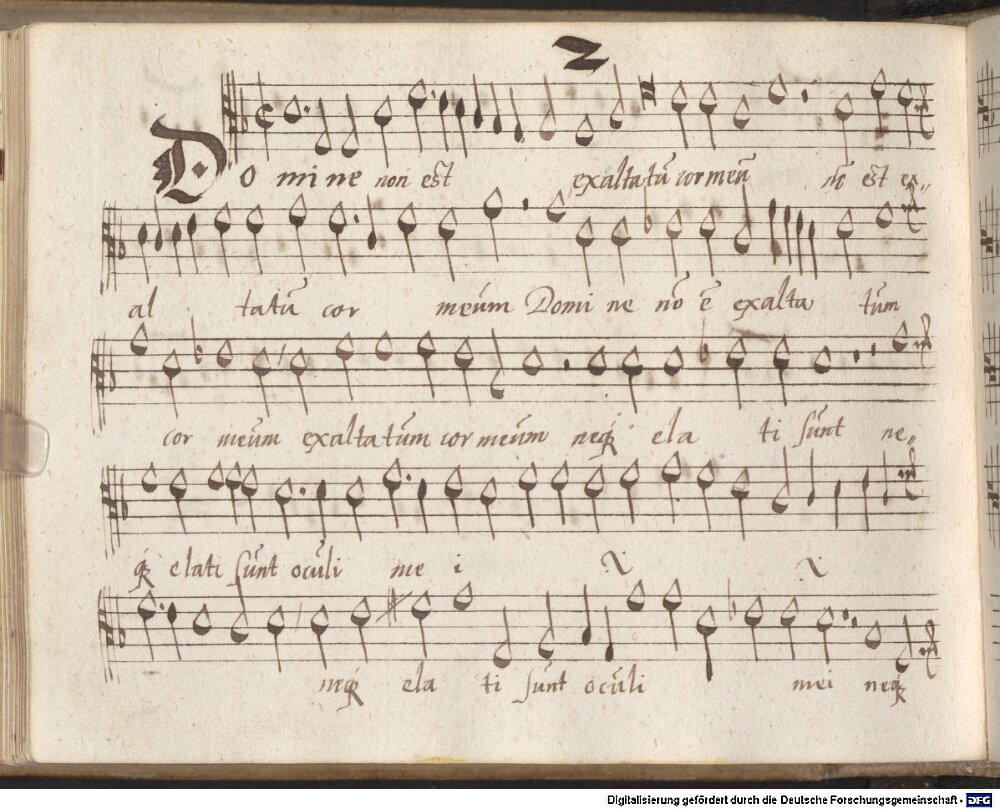 2
Domine non est exaltatū cor meū nō est ex„
al tatū cor meūm Domi ne nō ē exalta tūm
cor meūm exaltatūm cor meūm neq̄ ela ti sūnt ne„
q̄ elati sūnt ocūli me i
neq̄ ela ti sūnt ocūli mei neq̄
Digitalisierung gefördert durch die Deutsche Forschungsgemeinschaft - DFG